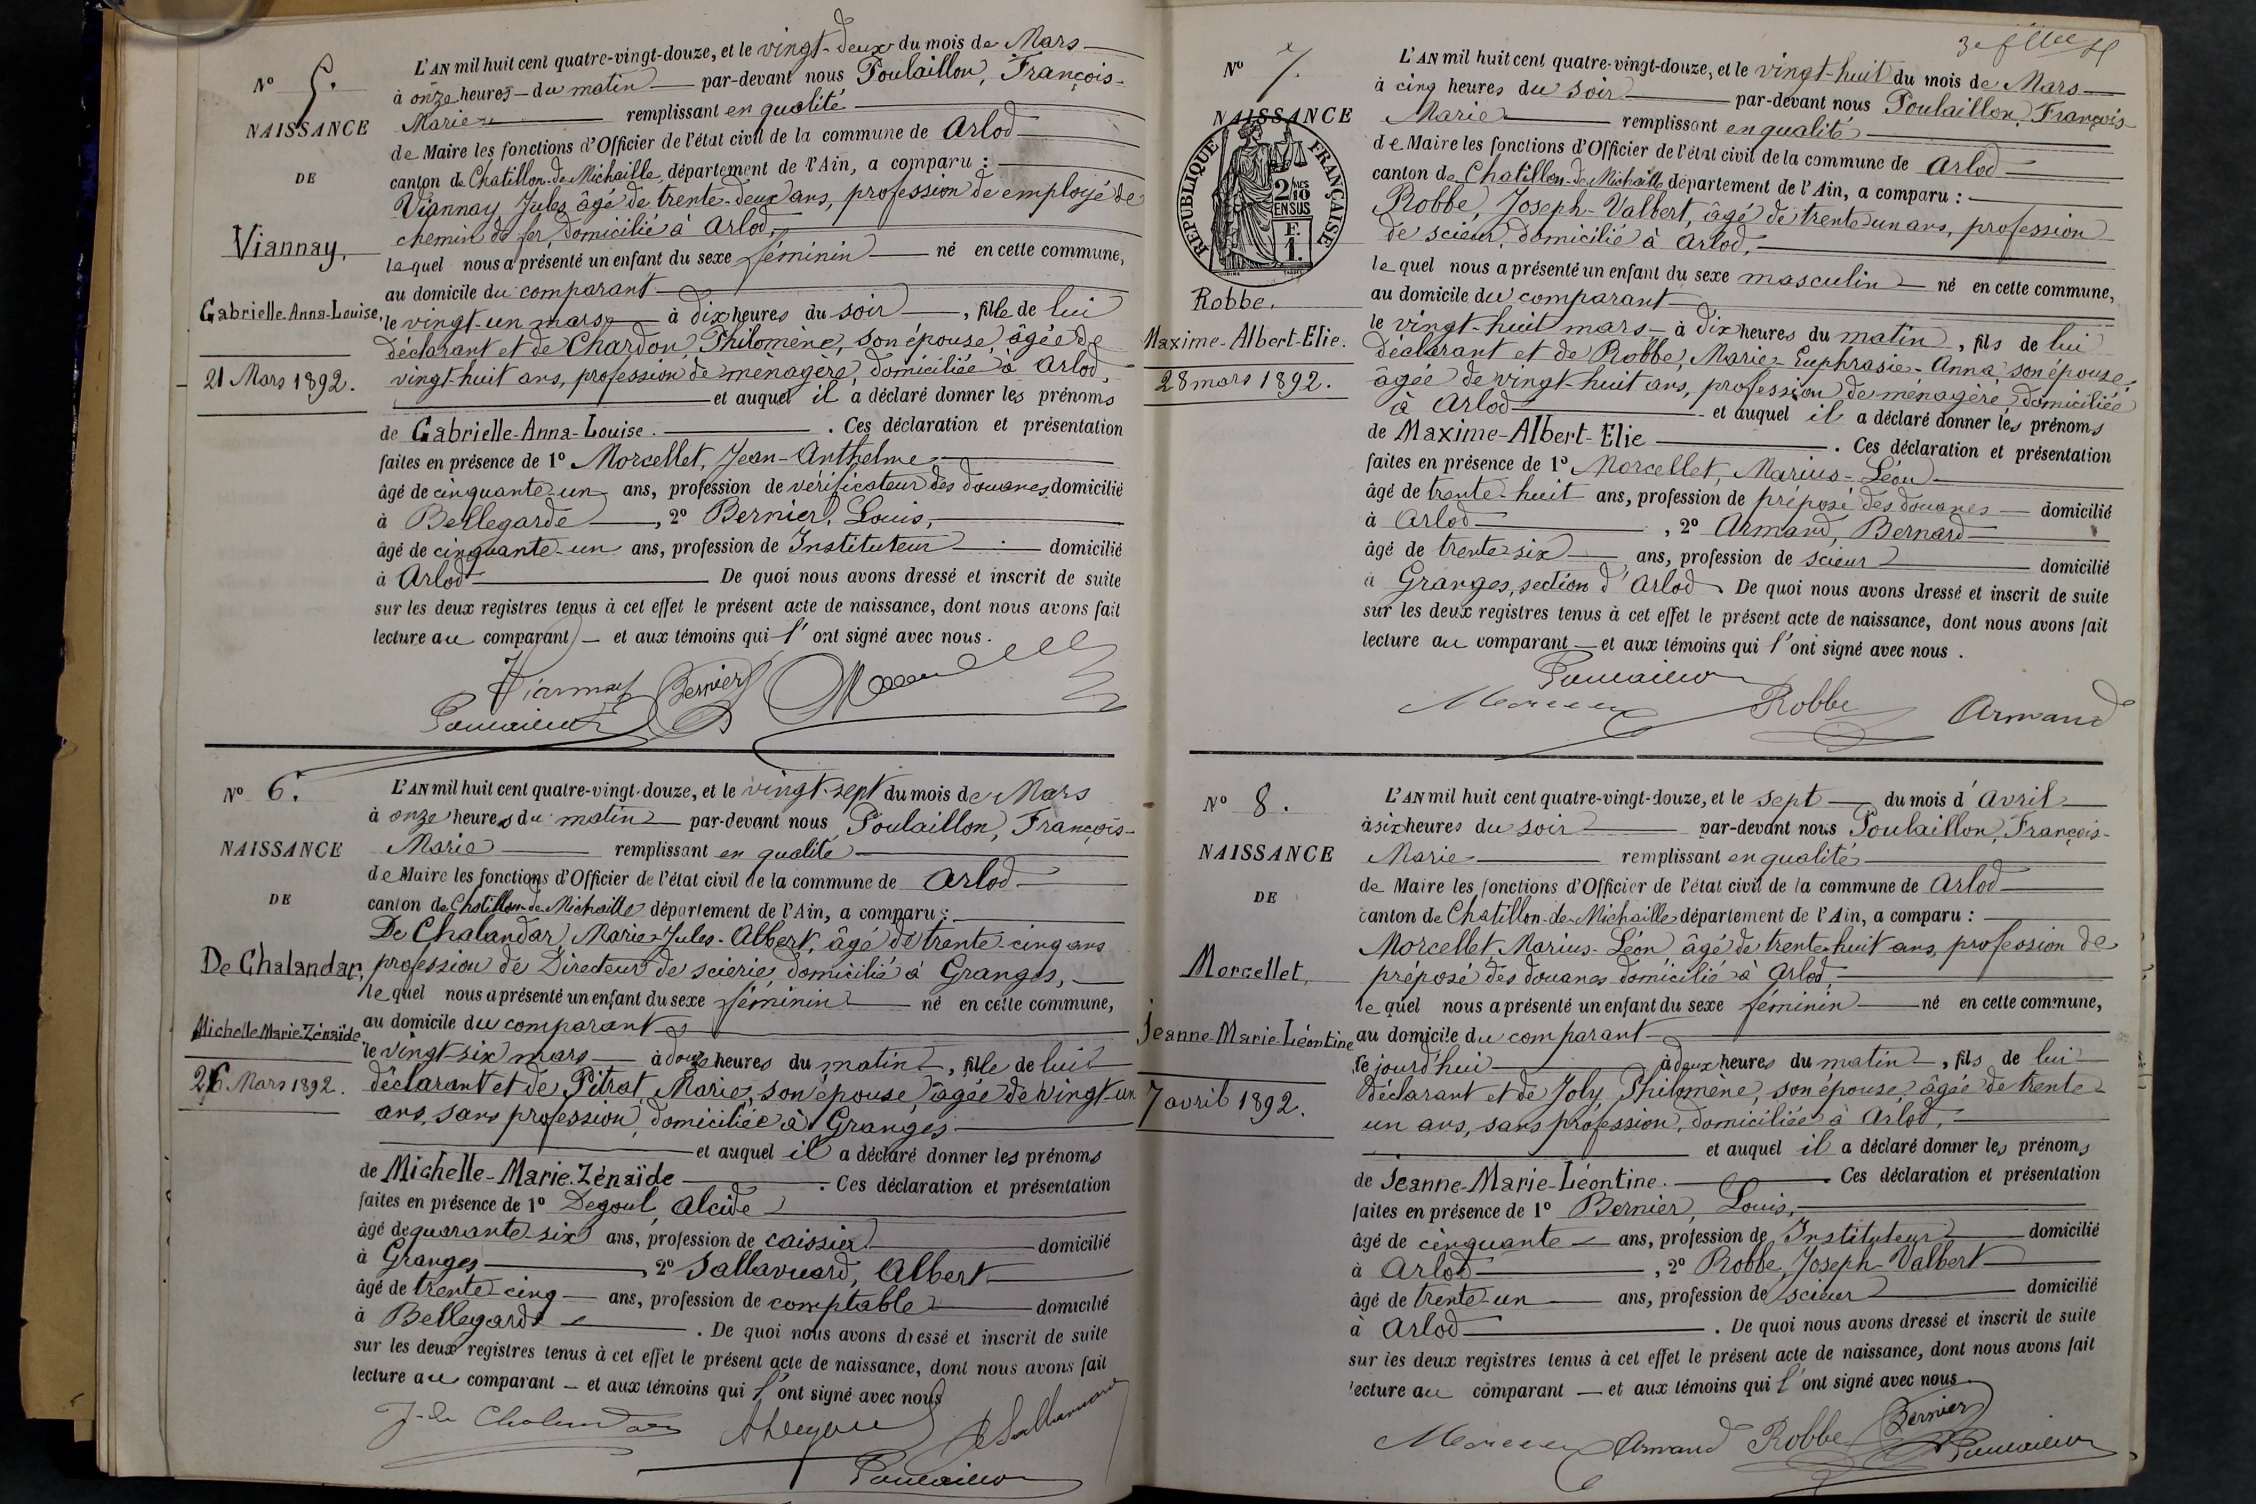 N° 5.
NAISSANCE
DE
Viannay,
Gabrielle-Anna-Louise,
21 Mars 1892.
L'AN mil huit cent quatre-vingt-douze, et le vingt-deux du mois de Mars
à onze heures du matin par-devant nous Poulaillon, François-
Marie remplissant en qualité
de Maire les fonctions d'Officier de l'état civil de la commune de Arlod
canton de Chatillon-de-Michaille, département de l'Ain, a comparu :
Viannay, Jules, âgé de trente-deux ans, profession de employé de
chemin de fer, domicilié à Arlod,
lequel nous a présenté un enfant du sexe féminin né en cette commune,
au domicile du comparant
le vingt-un mars à dix heures du soir, fille de lui
déclarant et de Chardon, Philomène, son épouse, âgée de
vingt-huit ans, profession de ménagère, domiciliée à Arlod,
et auquel il a déclaré donner les prénoms
de Gabrielle-Anna-Louise. Ces déclaration et présentation
faites en présence de 1° Morcellet, Jean-Anthelme
âgé de cinquante-un ans, profession de vérificateur des douanes, domicilié
à Bellegarde, 2° Bernier, Louis,
âgé de cinquante-un ans, profession de Instituteur domicilié
à Arlod De quoi nous avons dressé et inscrit de suite
sur les deux registres tenus à cet effet le présent acte de naissance, dont nous avons fait
lecture au comparant et aux témoins qui l'ont signé avec nous.
Viannay Bernier
Poulaillon
N° 6.
NAISSANCE
DE
De Chalandar,
Michelle-Marie-Zénaïde
26 Mars 1892.
L'AN mil huit cent quatre-vingt-douze, et le vingt-sept du mois de Mars
à onze heures du matin par-devant nous Poulaillon, François-
Marie remplissant en qualité
de Maire les fonctions d'Officier de l'état civil de la commune de Arlod
canton de Chatillon-de-Michaille département de l'Ain, a comparu :
De Chalandar, Marie-Jules-Albert, âgé de trente-cinq ans
profession de Directeur de scierie, domicilié à Granges,
lequel nous a présenté un enfant du sexe féminin né en cette commune,
au domicile du comparant
le vingt-six mars à douze heures du matin, fille de lui
déclarant et de Pitrat, Marie, son épouse, âgée de vingt-un
ans, sans profession, domiciliée à Granges
et auquel il a déclaré donner les prénoms
de Michelle-Marie-Zénaïde. Ces déclaration et présentation
faites en présence de 1° Degoul, Alcide
âgé de quarante-six ans, profession de caissier domicilié
à Granges, 2° Sallavuard, Albert
âgé de trente-cinq ans, profession de comptable domicilié
à Bellegarde. De quoi nous avons dressé et inscrit de suite
sur les deux registres tenus à cet effet le présent acte de naissance, dont nous avons fait
lecture au comparant et aux témoins qui l'ont signé avec nous
J. de Chalandar ADegoul Sallavuard
Poulaillon
N° 7.
NAISSANCE
RÉPUBLIQUE FRANÇAISE
2/10 MES
EN SUS
F.
1.
Robbe,
Maxime-Albert-Elie.
28 mars 1892.
L'AN mil huit cent quatre-vingt-douze, et le vingt-huit du mois de Mars
à cinq heures du soir par-devant nous Poulaillon, François-
Marie remplissant en qualité
de Maire les fonctions d'Officier de l'état civil de la commune de Arlod
canton de Chatillon-de-Michaille département de l'Ain, a comparu :
Robbe, Joseph-Valbert, âgé de trente un ans, profession
de scieur, domicilié à Arlod,
lequel nous a présenté un enfant du sexe masculin né en cette commune,
au domicile du comparant
le vingt-huit mars à dix heures du matin, fils de lui
déclarant et de Robbe, Marie-Euphrasie-Anna son épouse,
âgée de vingt-huit ans, profession de ménagère, domiciliée
à Arlod et auquel il a déclaré donner les prénoms
de Maxime-Albert-Elie. Ces déclaration et présentation
faites en présence de 1° Morcellet, Marius-Léon
âgé de trente-huit ans, profession de préposé des douanes domicilié
à Arlod, 2° Armand, Bernard
âgé de trente-six ans, profession de scieur domicilié
à Granges, section d'Arlod De quoi nous avons dressé et inscrit de suite
sur les deux registres tenus à cet effet le présent acte de naissance, dont nous avons fait
lecture au comparant et aux témoins qui l'ont signé avec nous.
Poulaillon
Morcellet Robbe Armand
N° 8.
NAISSANCE
DE
Morcellet,
Jeanne-Marie-Léontine
7 avril 1892.
L'AN mil huit cent quatre-vingt-douze, et le sept du mois d'Avril
à six heures du soir par-devant nous Poulaillon, François-
Marie remplissant en qualité
de Maire les fonctions d'Officier de l'état civil de la commune de Arlod
canton de Chatillon-de-Michaille département de l'Ain, a comparu :
Morcellet, Marius-Léon âgé de trente-huit ans, profession de
préposé des douanes domicilié à Arlod,
lequel nous a présenté un enfant du sexe féminin né en cette commune,
au domicile du comparant
le jourd'hui à deux heures du matin, fils de lui
déclarant et de Joly, Philomène, son épouse, âgée de trente-
un ans, sans profession, domiciliée à Arlod,
et auquel il a déclaré donner les prénoms
de Jeanne-Marie-Léontine. Ces déclaration et présentation
faites en présence de 1° Bernier, Louis,
âgé de cinquante ans, profession de Instituteur domicilié
à Arlod, 2° Robbe, Joseph-Valbert
âgé de trente-un ans, profession de scieur domicilié
à Arlod. De quoi nous avons dressé et inscrit de suite
sur les deux registres tenus à cet effet le présent acte de naissance, dont nous avons fait
lecture au comparant et aux témoins qui l'ont signé avec nous
Morcellet Armand Robbe Bernier
Poulaillon